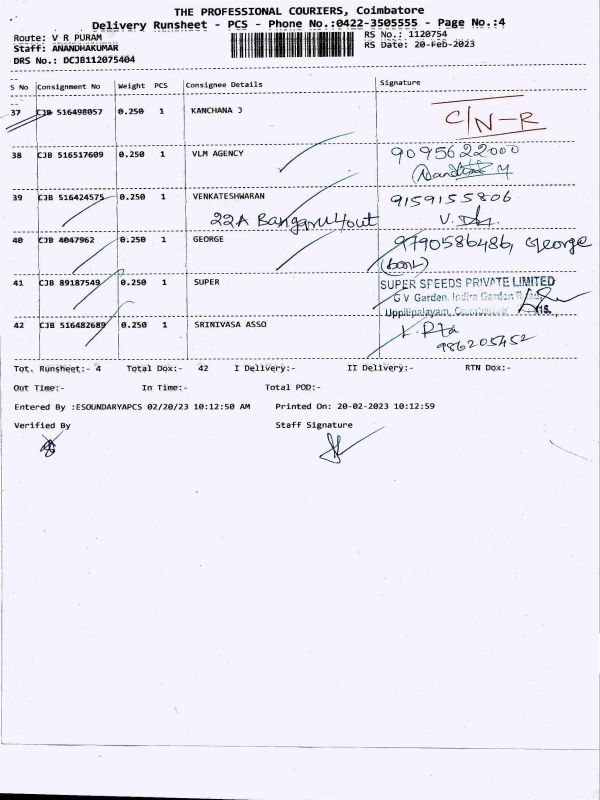 THE PROFESSIONAL COURIERS, Coimbatore
Delivery Runsheet - PCS - Phone No.:0422-3505555 - Page No.:4
Route: V R PURAM
RS No.: 1120754
Staff: ANANDHAKUMAR
RS Date: 20-Feb-2023
DRS No.: DCJB112075404
S No Consignment No Weight PCS Consignee Details Signature
37 CJB 516498057 0.250 1 KANCHANA J C/N-R
38 CJB 516517609 0.250 1 VLM AGENCY 9095622000
39 CJB 516424575 0.250 1 VENKATESHWARAN 9159155806
22A
40 CJB 4047962 0.250 1 GEORGE 9790586486, George
41 CJB 89187549 0.250 1 SUPER SUPER SPEEDS PRIVATE LIMITED
G V Garden, Indira Garden Road
Uppilipalayam, Coimbatore
42 CJB 516482689 0.250 1 SRINIVASA ASSO
986205452
Tot. Runsheet:- 4 Total Dox:- 42 I Delivery:- II Delivery:- RTN Dox:-
Out Time:- In Time:- Total POD:-
Entered By :ESOUNDARYAPCS 02/20/23 10:12:50 AM Printed On: 20-02-2023 10:12:59
Verified By Staff Signature